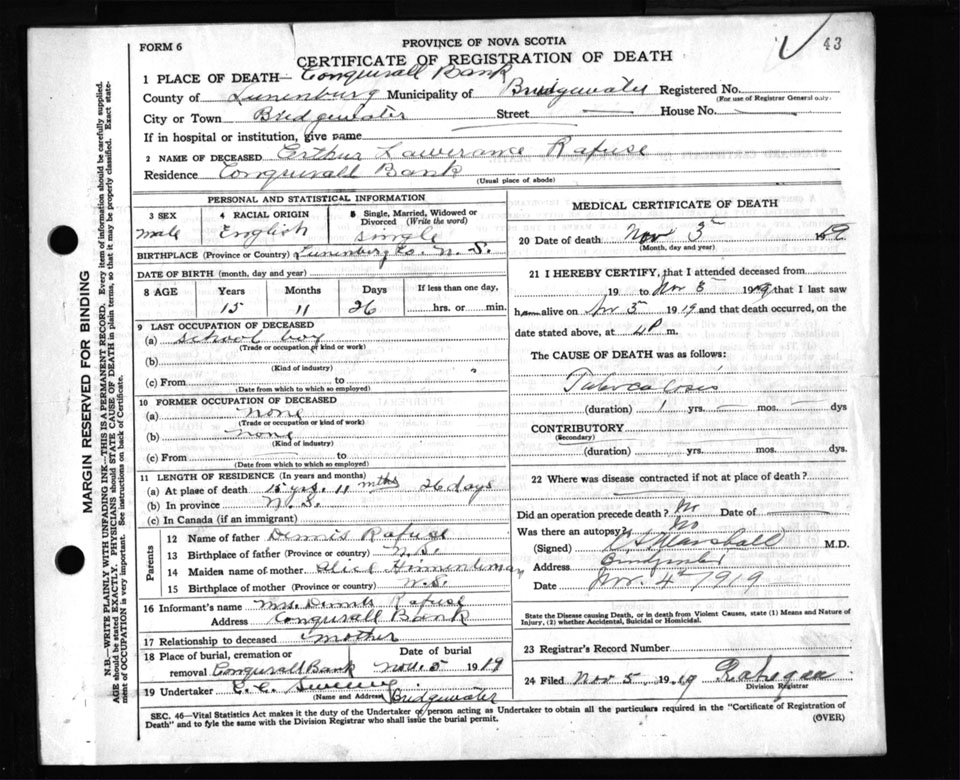 43
FORM 6
PROVINCE OF NOVA SCOTIA
CERTIFICATE OF REGISTRATION OF DEATH
1 PLACE OF DEATH— Conquerall Bank
County of Lunenburg Municipality of Bridgewater Registered No.
(For use of Registrar General only)
City or Town Bridgewater Street — House No. —
If in hospital or institution, give name
2 NAME OF DECEASED Arthur Lawerance Rafuse
Residence Conquerall Bank
(Usual place of abode)
PERSONAL AND STATISTICAL INFORMATION
3 SEX 4 RACIAL ORIGIN 5 Single, Married, Widowed or Divorced (Write the word)
male English single
BIRTHPLACE (Province or Country) Lunenburg Co. N. S.
DATE OF BIRTH (month, day and year)
8 AGE Years Months Days If less than one day,
15 11 26 hrs. or min.
9 LAST OCCUPATION OF DECEASED
(a) School boy
(Trade or occupation or kind or work)
(b)
(Kind of industry)
(c) From to
(Date from which to which so employed)
10 FORMER OCCUPATION OF DECEASED
(a) none
(Trade or occupation or kind of work)
(b) none
(Kind of industry)
(c) From to
(Date from which to which so employed)
11 LENGTH OF RESIDENCE (In years and months)
(a) At place of death 15 yrs. 11 mths 26 days
(b) In province N. S.
(c) In Canada (if an immigrant)
Parents
12 Name of father Dennis Rafuse
13 Birthplace of father (Province or country) N.S.
14 Maiden name of mother
15 Birthplace of mother (Province or country) N.S.
16 Informant's name Mrs. Dennis Rafuse
Address Conquerall Bank
17 Relationship to deceased mother
18 Place of burial, cremation or Date of burial
removal Conquerall Bank Nov. 5 1919
19 Undertaker
(Name and Address) Bridgewater
MEDICAL CERTIFICATE OF DEATH
20 Date of death Nov 3 1919
(Month, day and year)
21 I HEREBY CERTIFY, that I attended deceased from
19 to Nov 3 1919 that I last saw
him alive on Nov 3 1919 and that death occurred, on the
date stated above, at 4 P m.
The CAUSE OF DEATH was as follows:
Tuberculosis
(duration) 1 yrs. — mos. — dys
CONTRIBUTORY
(Secondary)
(duration) yrs. mos. dys
22 Where was disease contracted if not at place of death?
Did an operation precede death? No Date of —
Was there an autopsy? No
(Signed) Marshall M.D.
Address Bridgewater
Date Nov. 4th 1919
State the Disease causing Death, or in death from Violent Causes, state (1) Means and Nature of
Injury, (2) whether Accidental, Suicidal or Homicidal.
23 Registrar's Record Number
24 Filed Nov 5, 1919
Division Registrar
SEC. 46—Vital Statistics Act makes it the duty of the Undertaker or person acting as Undertaker to obtain all the particulars required in the "Certificate of Registration of
Death" and to fyle the same with the Division Registrar who shall issue the burial permit.
(OVER)
MARGIN RESERVED FOR BINDING
N.B.—WRITE PLAINLY WITH UNFADING INK—THIS IS A PERMANENT RECORD. Every item of information should be carefully supplied.
AGE should be stated EXACTLY. PHYSICIANS should STATE CAUSE OF DEATH in plain terms, so that it may be properly classified. Exact state-
ment of OCCUPATION is very important. See instructions on back of Certificate.